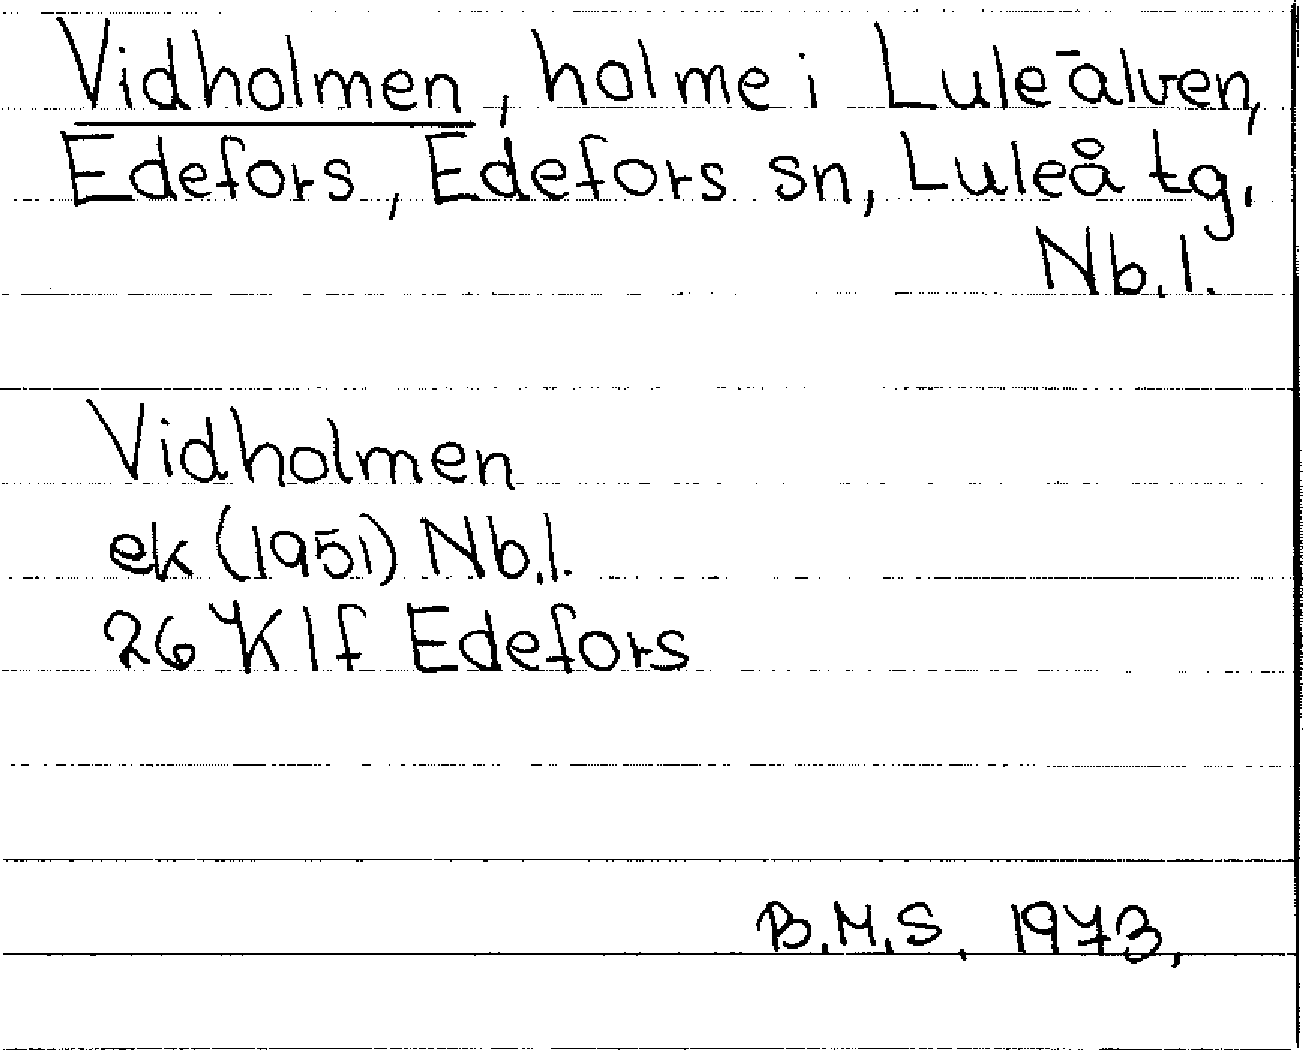 Vidholmen, holme i Luleälven,
Edefors, Edefors sn, Luleå tg.
Nb.l.
Vidholmen
ek (1951) Nb.l.
26 K 1 f Edefors
B.M.S. 1973.